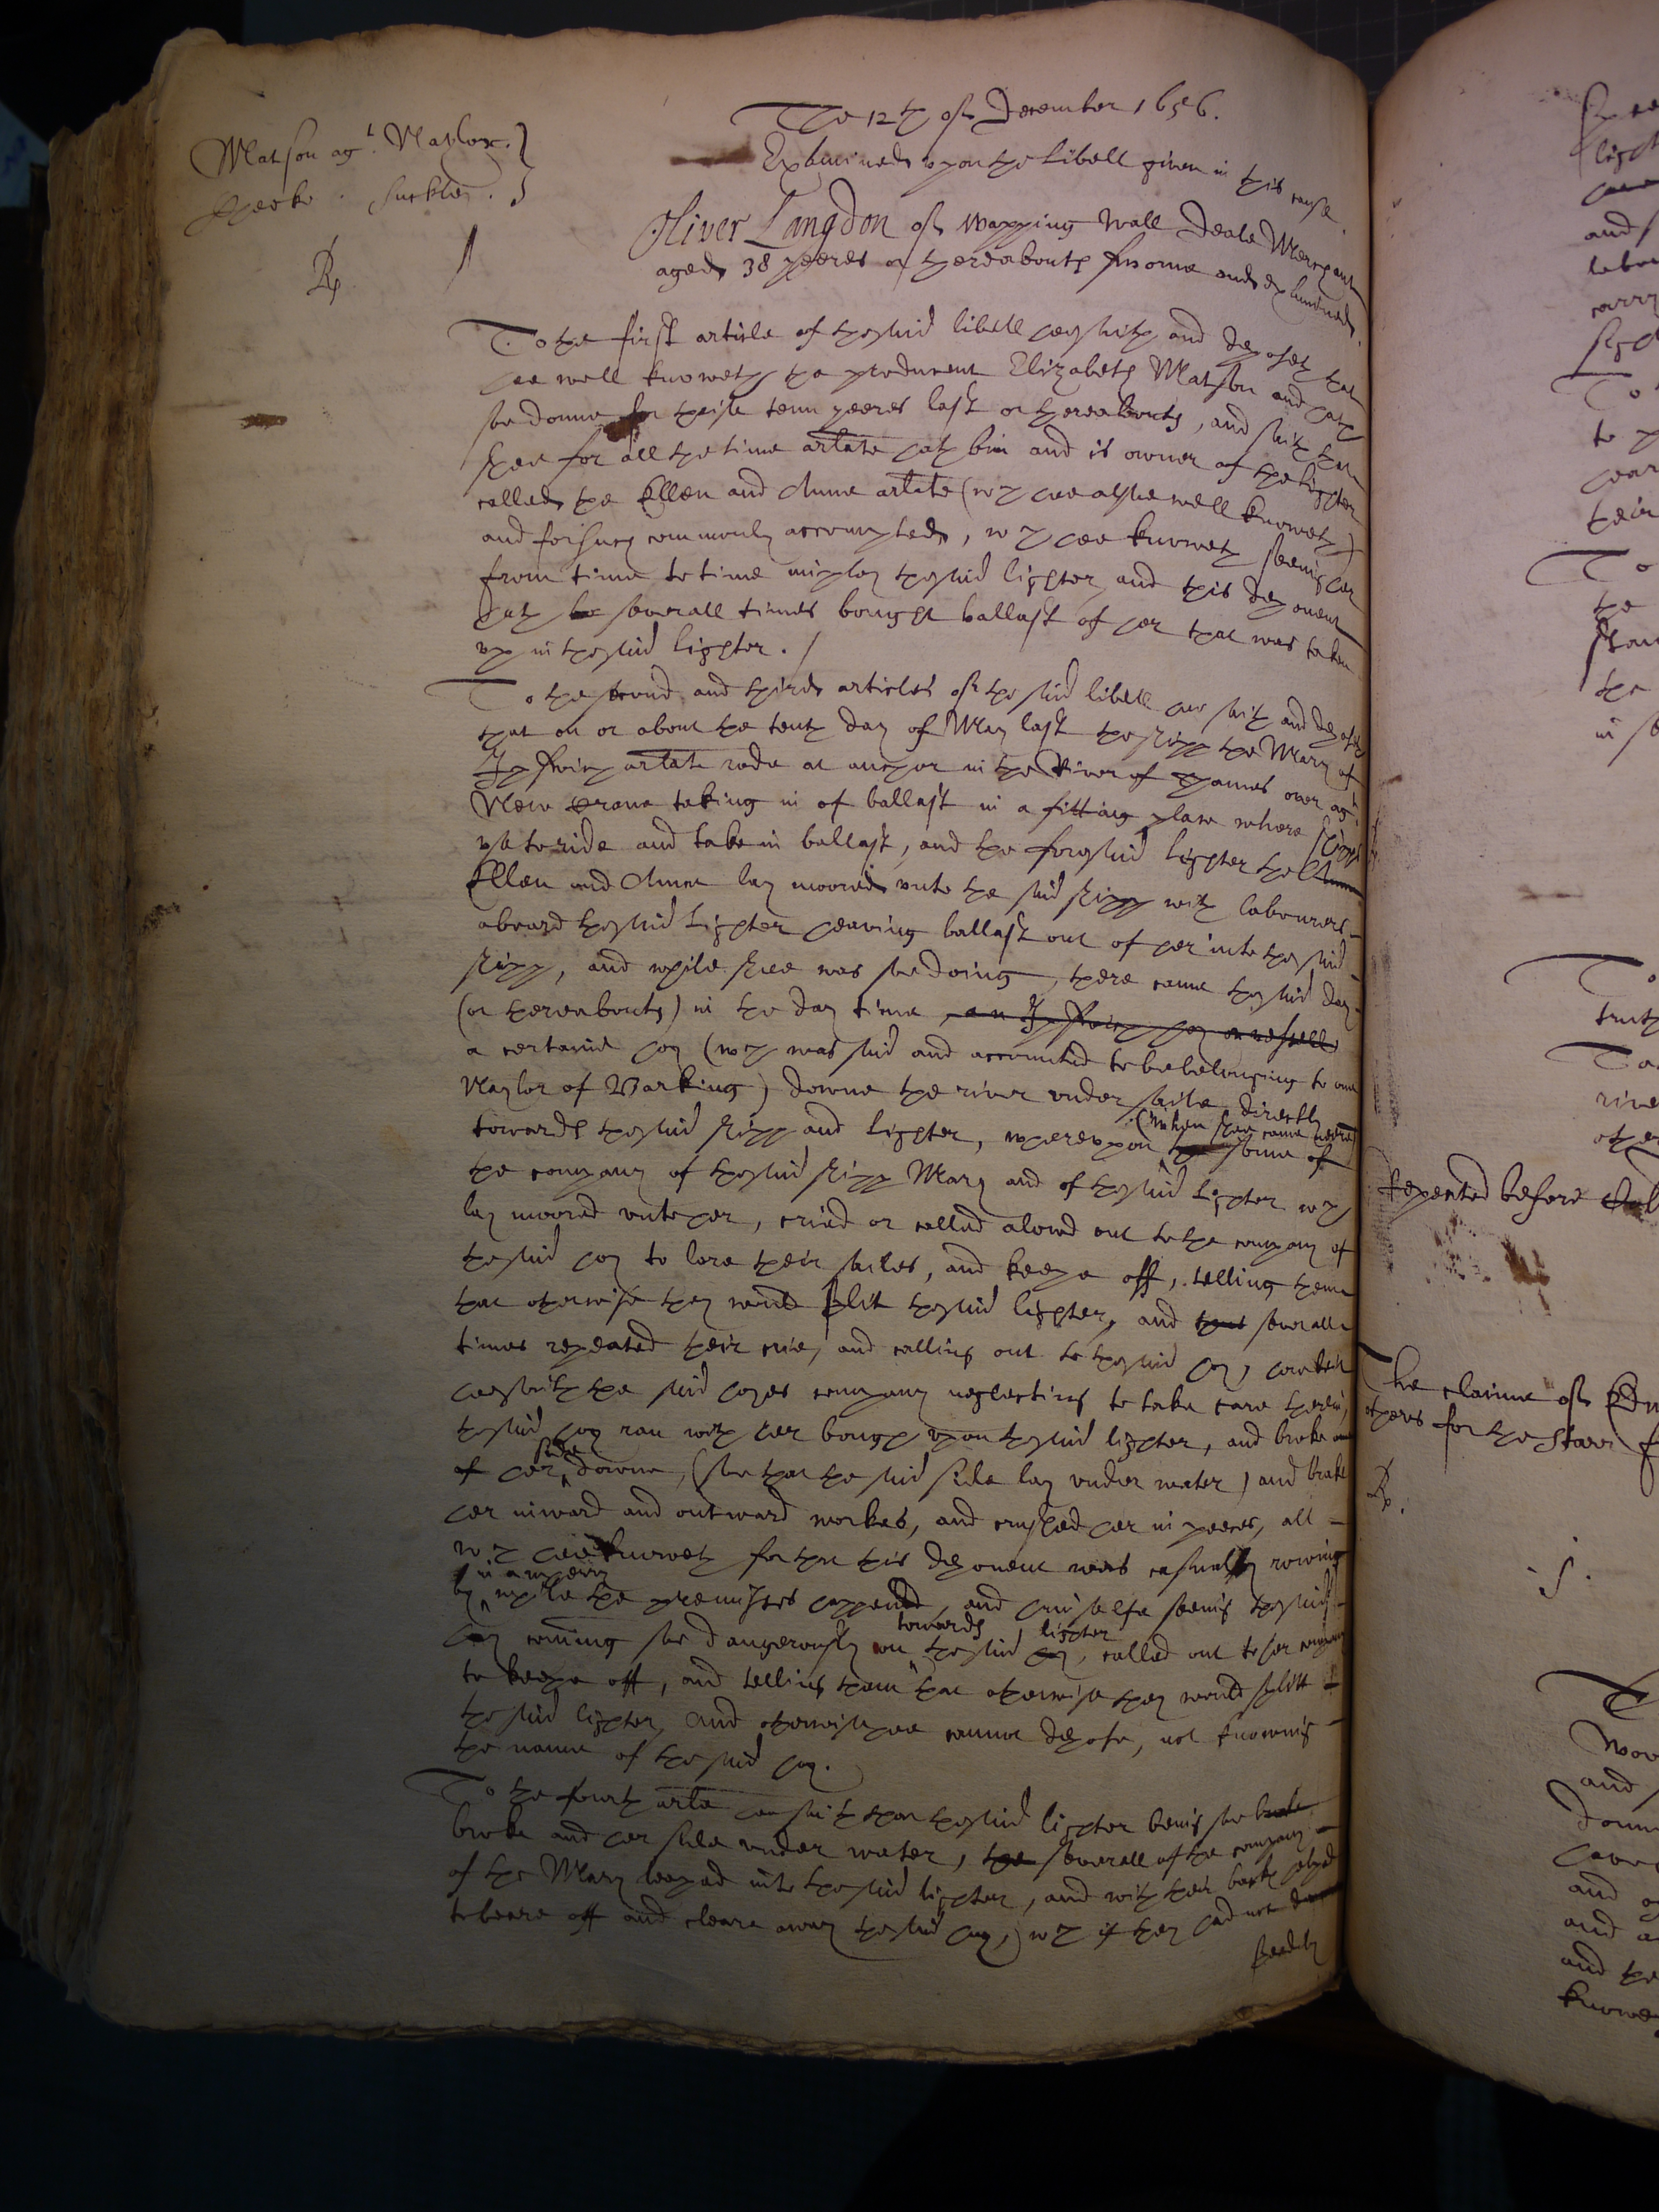 The 12th of December 1656.
Examined upon the libell given in this cause.
Matson agt. Naylor. }
Cheeke . Suckley . }
Rp. 1
Oliver Langdon of Wapping Wall Deale Merchant
aged 38 yeeres or thereabouts sworne and examined.
To the first article of the said libell hee saith and deposeth that
hee well knoweth the producent Elizabeth Matson and hath
soe donne for theise tenn yeeres last or thereabouts, and saith that
shee for all the time arlate hath bin and is owner of the lighter
called the Ellen and Anne arlate (wch hee alsoe well knoweth)
and for such commonly accompted, wch hee knoweth seeing her
from time to time imploy the said lighter, and this deponent
hath severall times bought ballast of her that was taken
up in the said lighter. /
To the second and third articles of the said libell hee saith and deposeth
that on or about the tenth day of May last the shipp the Mary of
Ipswich arlate rode at anchor in the River of Thames over agt
New Crane taking in of ballast in a fitting place where shipps
use to ride and take in ballast, and the foresaid lighter the
Ellen and Anne lay moored unto the said shipp with labourers
aboard the said lighter heaving ballast out of her into the said
shipp, and while shee was soe doing, there came the said day
(or thereabouts) in the day time an Ipswich hoy or vessell
a certaine hoy (wch was said and accounted to be belonging to one
Naylor of Barking) downe the river under saile directly
towards the said shipp and lighter, whereupon (when shee came neere) some of
the company of the said shipp Mary and of the said lighter wch
lay moored unto her, cried or called aloud out to the company of
the said hoy to lore their sailes, and keepe off, telling them
that otherwise they would split the said lighter, and that severall
times repeated their crie, and calling out to the said hoy, howbeit
hee saith the said hoyes company neglecting to take care therein,
the said hoy ran with her bough upon the said lighter, and broke one
of her side downe, (soe that the said side lay under water) and brake
her inward and outward workes, and crushed her in peeces, all
wch hee knoweth for that this deponent was casually rowing
by in a wherry while the premisses happened, and himselfe seeing the said
hoy coming soe dangerously on towards the said hoy lighter, called out to her company
to keepe off, and telling them that otherwise they would splitt
the said lighter, and otherwise hee cannot depose, not knowing
the name of the said hoy.
To the fourth arle hee saith that the said lighter being soe
broke and her side under water, the severall of the company
of the Mary leaped into the said lighter, and with their backs helped
to beare off and cleare away the said hoy, wch if they had not
speedily
Repeated before
The claime of
others for the Starr
Rp.